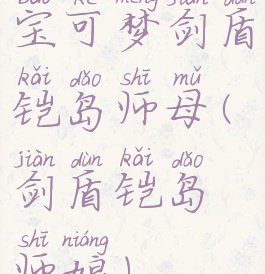 bǎo kě mèng jiàn dùn
宝可梦剑盾
kǎi dǎo shī mǔ
铠岛师母(
jiàn dùn kǎi dǎo
剑盾铠岛
shī niáng
师娘)